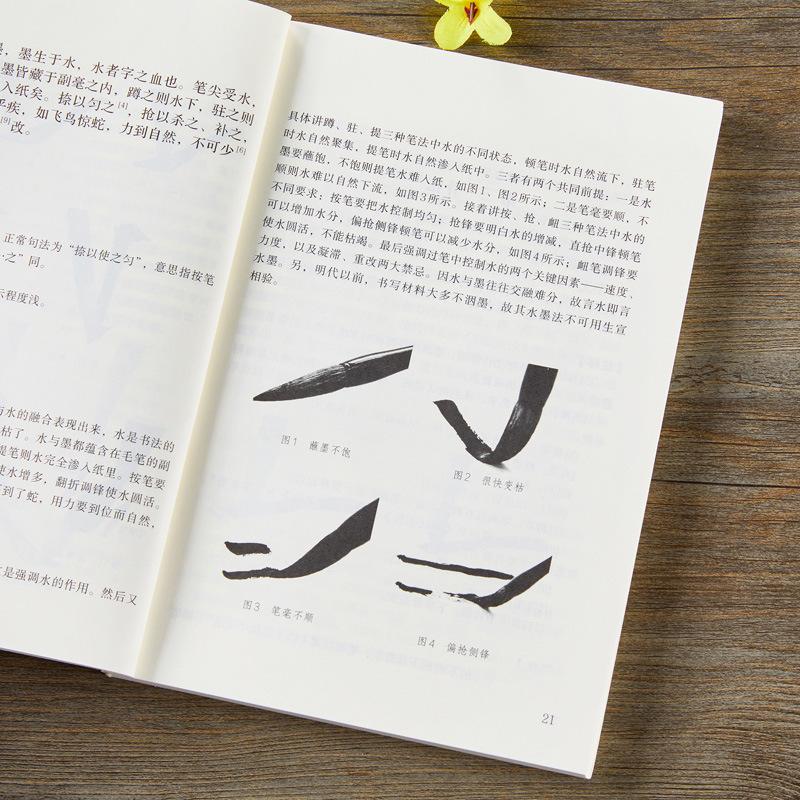 ，墨生于水，水者字之血也。笔尖受水，
墨皆藏于副毫之内，蹲之则水下，驻之则
入纸矣。捺以匀之[4]，抢以杀之、补之，
疾，如飞鸟惊蛇，力到自然，不可少[6]
[9]改。
正常句法为“捺以使之匀”，意思指按笔
之”同。
示程度浅。
与水的融合表现出来，水是书法的
枯了。水与墨都蕴含在毛笔的副
提笔则水完全渗入纸里。按笔要
使水增多，翻折调锋使水圆活。
到了蛇，用力要到位而自然，
是强调水的作用。然后又
具体讲蹲、驻、提三种笔法中水的不同状态，顿笔时水自然流下，驻笔
时水自然聚集，提笔时水自然渗入纸中。三者有两个共同前提：一是水
墨要蘸饱，不饱则提笔水难入纸，如图1、图2所示；二是笔毫要顺，不
顺则水难以自然下流，如图3所示。接着讲按、抢、衄三种笔法中水的
不同要求：按笔要把水控制均匀；抢锋要明白水的增减，直抢中锋顿笔
可以增加水分，偏抢侧锋顿笔可以减少水分，如图4所示；衄笔调锋要
使水圆活，不能枯竭。最后强调过笔中控制水的两个关键因素——速度、
力度，以及凝滞、重改两大禁忌。因水与墨往往交融难分，故言水即言
水墨。另，明代以前，书写材料大多不洇墨，故其水墨法不可用生宣
相验。
图1 蘸墨不饱
图2 很快变枯
图3 笔毫不顺
图4 偏抢侧锋
21